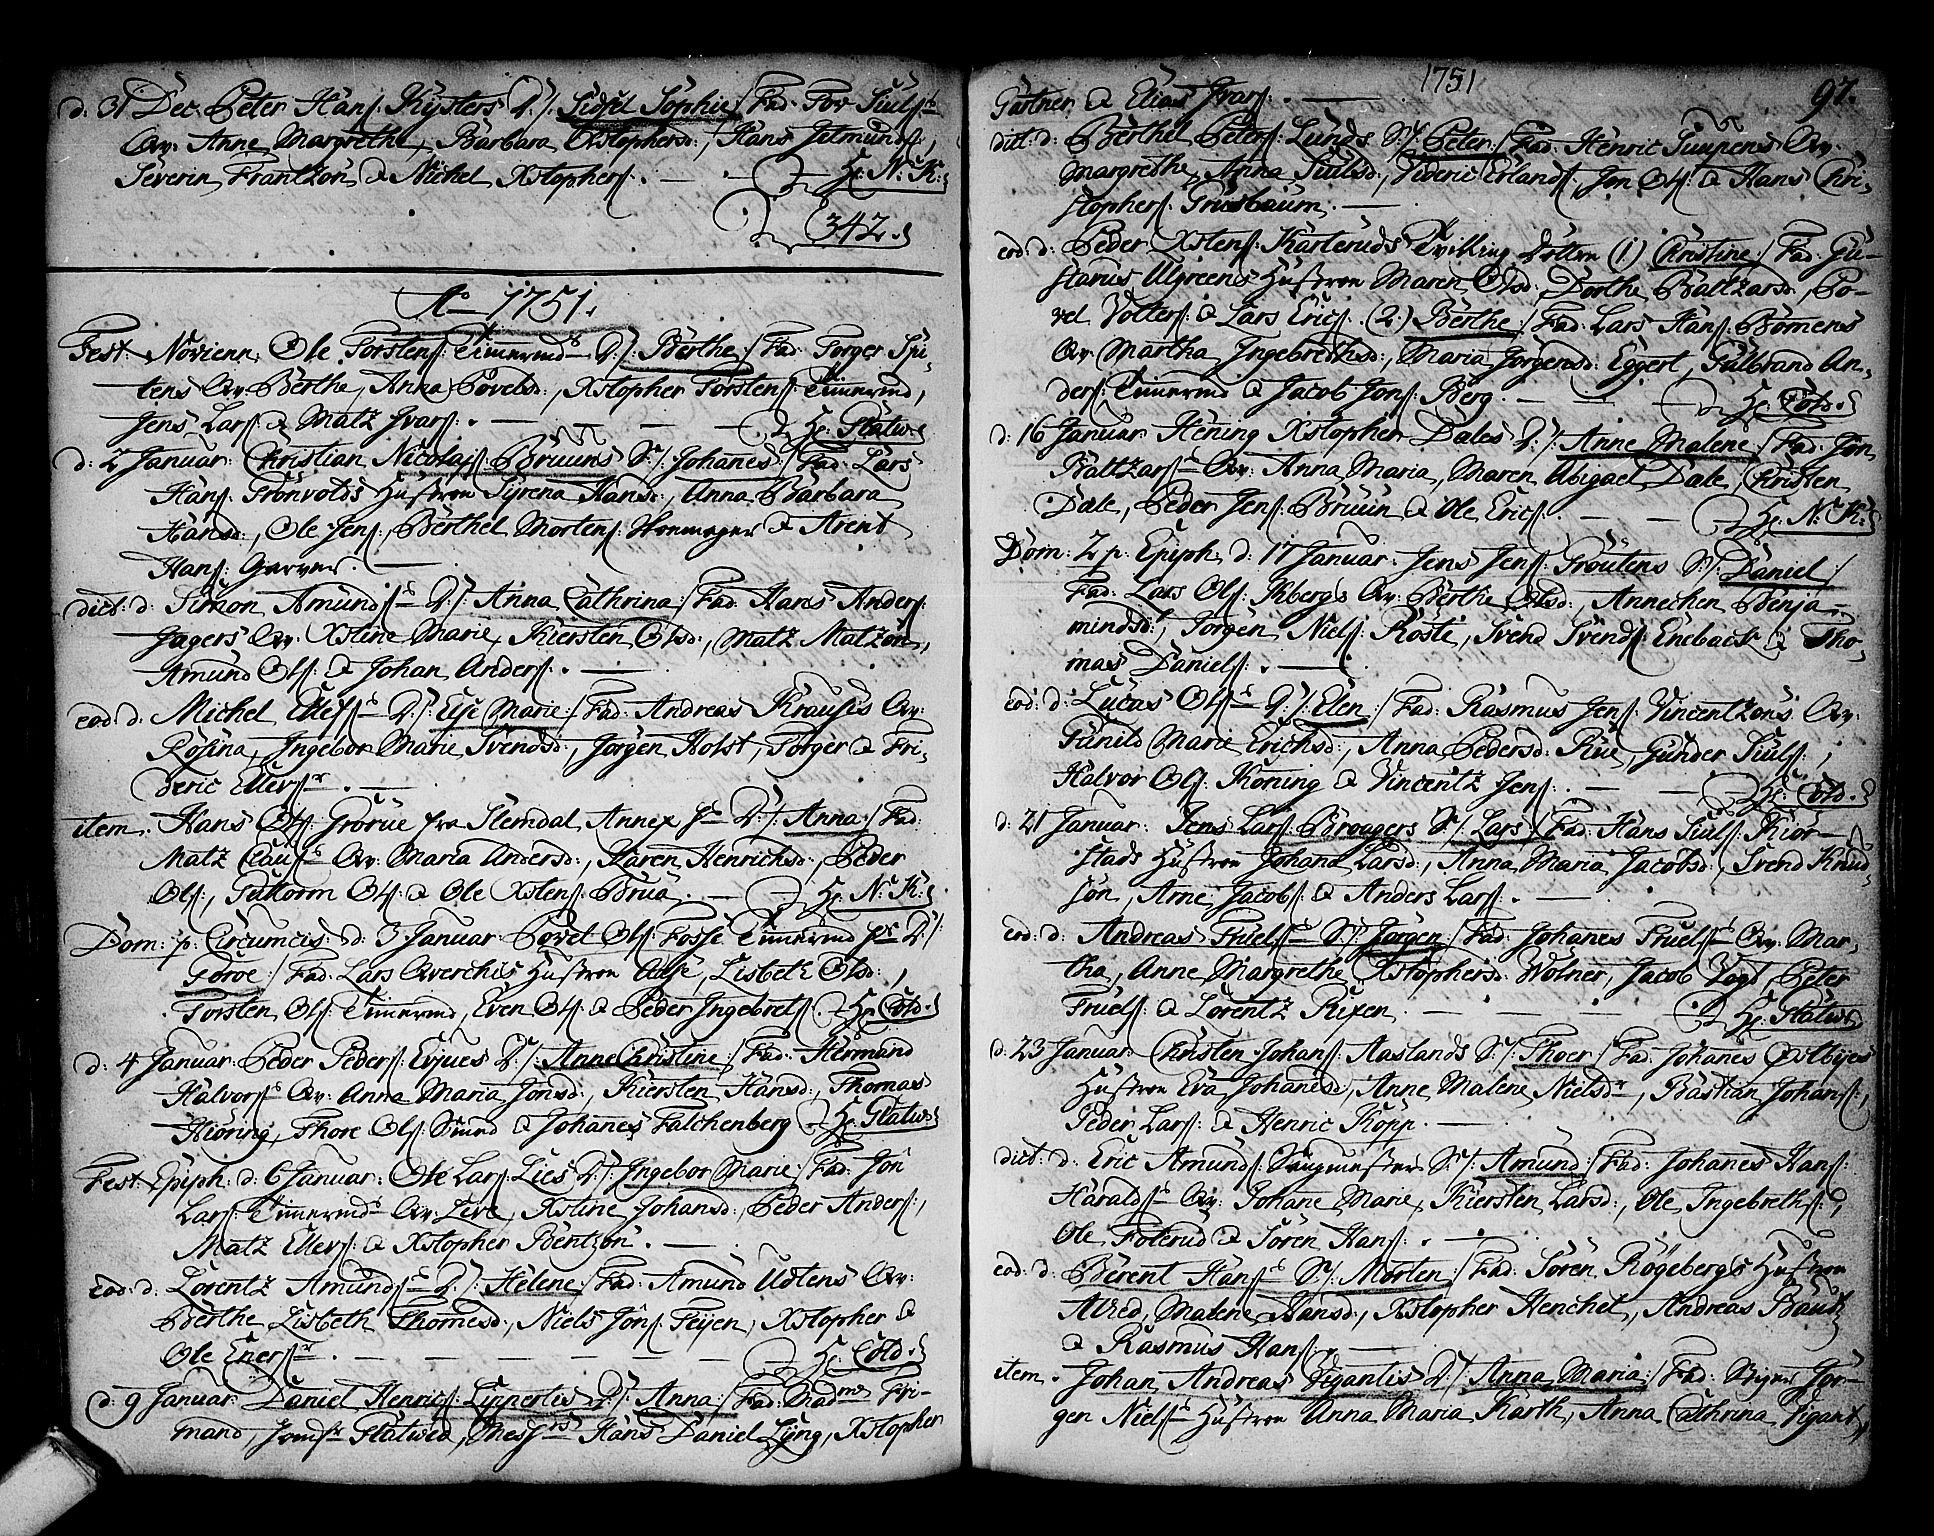 d. 31 Dec. Peter Hans: Kysters D./. Sidsel Sophie /. Fad. Tor Siuls:
Qv: Anne Margrethe, Barbara Xstophersd:, Hans Jetmunds:,
Severin Frantzøn & Michel Xstophers: . — Hr. N: K:
342.
Ao 1751.
Fest. Novi enn: Ole Torstens: Timermd: D./. Berthe /. Fad. Torger Spi-
tens Qv: Berthe, Anna Povelsd:, Xstopher Torstens: Timermd,
Jens Lars: & Matz Ivars: . — Hr. Flatw:
d: 2 Januar: Christian Nicolajs: Bruuns S./. Johanes /. Fad. Lars
Hans: Grönvolds Hustroe Syrena Hansd:, Anna Barbara
Hansd:, Ole Jens:, Berthel Mortens: & Arent
Hans: Garver. —
dict: d. Simon Amunds: D./. Anna Cathrina /. Fad. Hans Anders:
Jagers Qv: Xstine Marie, Kiersten Olsd:, Matz Matzøn,
Amund Ols: & Johan Anders: . —
eod: d. Michel Ellefs: D./. Else Marie /. Fad. Andreas Krauses Qv:
Rosina, Ingebor Marie Svendsd:, Jørgen Holst, Torger & Fri-
deric Ellevs: . —
item. Hans Ols: Grorüe fra Slemdal Annex D./. Anna /. Fad:
Matz Claus: Qv: Maria Andersd:, Karen Henrichsd:, Peder
Ols:, Guttorm Ols: & Ole Xstens: Brua. — Hr. N: K:
Dom: p: Circumcis: d. 3 Januar: Povel Ols: Fosse Timermd D./.
Goroe /. Fad. Lars Hustroe Aase, Lisbeth Olsd:,
Torsten Ols: Timermd, Even Ols: & Peder Ingebrets: . Hr. Cold.
d. 4 Januar: Peder Peders: Evjues D./. Anne Christine /. Fad. Hermand
Halvors: Qv: Anna Maria Jonsd:, Kiersten Hansd:, Thomas
Hiöring, Thore Ols: Smed & Johanes Falchenberg Hr. Flatw:
Fest. Epiph: d. 6 Januar: Ole Lars: Lies D./. Ingebor Marie /. Fad. Jon
Lars: Timermd: Qv: Live, Xstine Johansd:, Peder Anders:,
Matz Ellevs: & Xstopher Bentzøn. —
eod: d. Lorentz Amunds: D./. Helene /. Fad. Amund Uxtens Qv:
Berthe, Lisbeth Thomesd:, Niels Jons: Feyen, Xstopher &
Ole Eners: . — Hr. Cold:
d: 9 Januar: Daniel Henrics: Lippertes D./. Anna /. Fad. Madme Fri-
mand, Jomfr: Flatwed, Mess:rs Hans Daniel Lyng, Xstopher
1751
97.
Gartner & Elias Ivars: . —
dict: d: Berthel Peters: Lunds S./. Peter /. Fad. Henric Suupens Qv:
Margrethe, Anna Siulsd:, Frideric Erlands:, Jon Ols: & Hans Chri-
stophers: Grusbaum. —
eod: d: Peder Xstens: Karteruds Tvilling Dottre (1) Christine /. Fad. Gu-
stavus Algreens Hustroe Maren Olsd:, Dorthe Baltzarsd:, Po-
vel Volters: & Lars Erics: (2.) Berthe /. Fad. Lars Hans: Bömens
Qv: Martha Ingebrethsd:, Maria Jörgensd: Eggert, Gulbrand An-
ders: Timermd & Jacob Jons: Berg. — Hr. Cold.
d: 16 Januar: Hening Xstopher Dales D./. Anne Malene /. Fad. Jon
Baltzars: Qv: Anna Maria, Maren Abigael Dale, Christen
Dale, Peder Jens: Bruun & Ole Erics: . — Hr. N: K:
Dom: 2 p: Epiph: d: 17 Januar: Jens Jens: Proutens S./. Daniel /.
Fad. Lars Ols: Ihbergs Qv: Berthe Olsd:, Annechen Benja-
mindsd:, Jörgen Niels: Koste, Svend Svends: Eneback & Tho-
mas Daniels: . —
eod: d: Lucas Ols: D./. Elen /. Fad. Rasmus Jens: Vincentzöns Qv:
Gunild Marie Erichsd:, Anna Pedersd: Rue, Gunder Siuls:,
Halvor Ols: Koning & Vincentz Jens: . — Hr. Cold.
d. 21 Januar: Jens Lars: Broagers S./. Lars /. Fad. Hans Siuls: Kiör-
stads Hustroe Johana Larsd:, Anna Maria Jacobsd:, Svend Knud-
søn, Arne Jacobs: & Anders Lars: . —
eod: d: Andreas Truels: S./. Jørgen /. Fad. Johanes Truels: Qv: Mar-
tha, Anne Margrethe Xstophersd: Wolner, Jacob Vogt, Peter
Truels: & Lorentz Rixen. — Hr. Flatw:
d. 23 Januar: Christen Johans: Aaslands S./. Thoer /. Fad. Johanes Ostbyes
Hustroe Eva Johansd:, Anne Malene Nielsdr, Bastian Johans:,
Peder Lars: & Henric Kopp. —
dict: d. Eric Amunds: Saugmesters S./. Amund /. Fad. Johanes Hans:
Haralds: Qv: Johane Marie, Kiersten Larsd:, Ole Ingebreths:,
Ole Foterud & Sören Hans: . —
eod: d: Berent Hans: S./. Morten /. Fad. Sören Rögebergs Hustroe
Alred, Malene Hansd:, Xstopher Henchel, Andreas Bautz
& Rasmus Hans: . —
item. Johan Andreas Gigantis D./. Anna Maria /. Fad. Jör-
gen Niels: Hustroe Anna Maria Karth, Anna Cathrina Gigant,